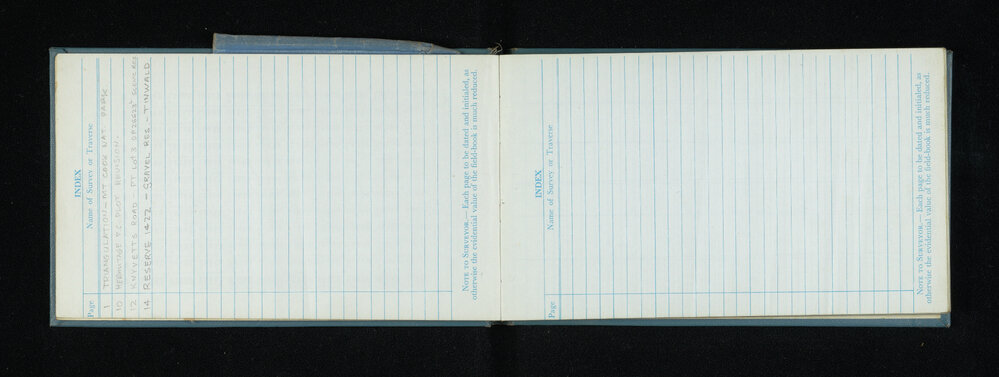 INDEX
Page Name of Survey or Traverse
1 TRIANGULATION - MT COOK NAT PARK
10 HERMITAGE PLOT REVISION.
12 KNYVETTS ROAD - PT LOT 3
14 RESERVE 1422 - GRAVEL RES - TINWALD
NOTE TO SURVEYOR.— Each page to be dated and initialed, as
otherwise the evidential value of the field-book is much reduced.
INDEX
Page Name of Survey or Traverse
NOTE TO SURVEYOR.— Each page to be dated and initialed, as
otherwise the evidential value of the field-book is much reduced.